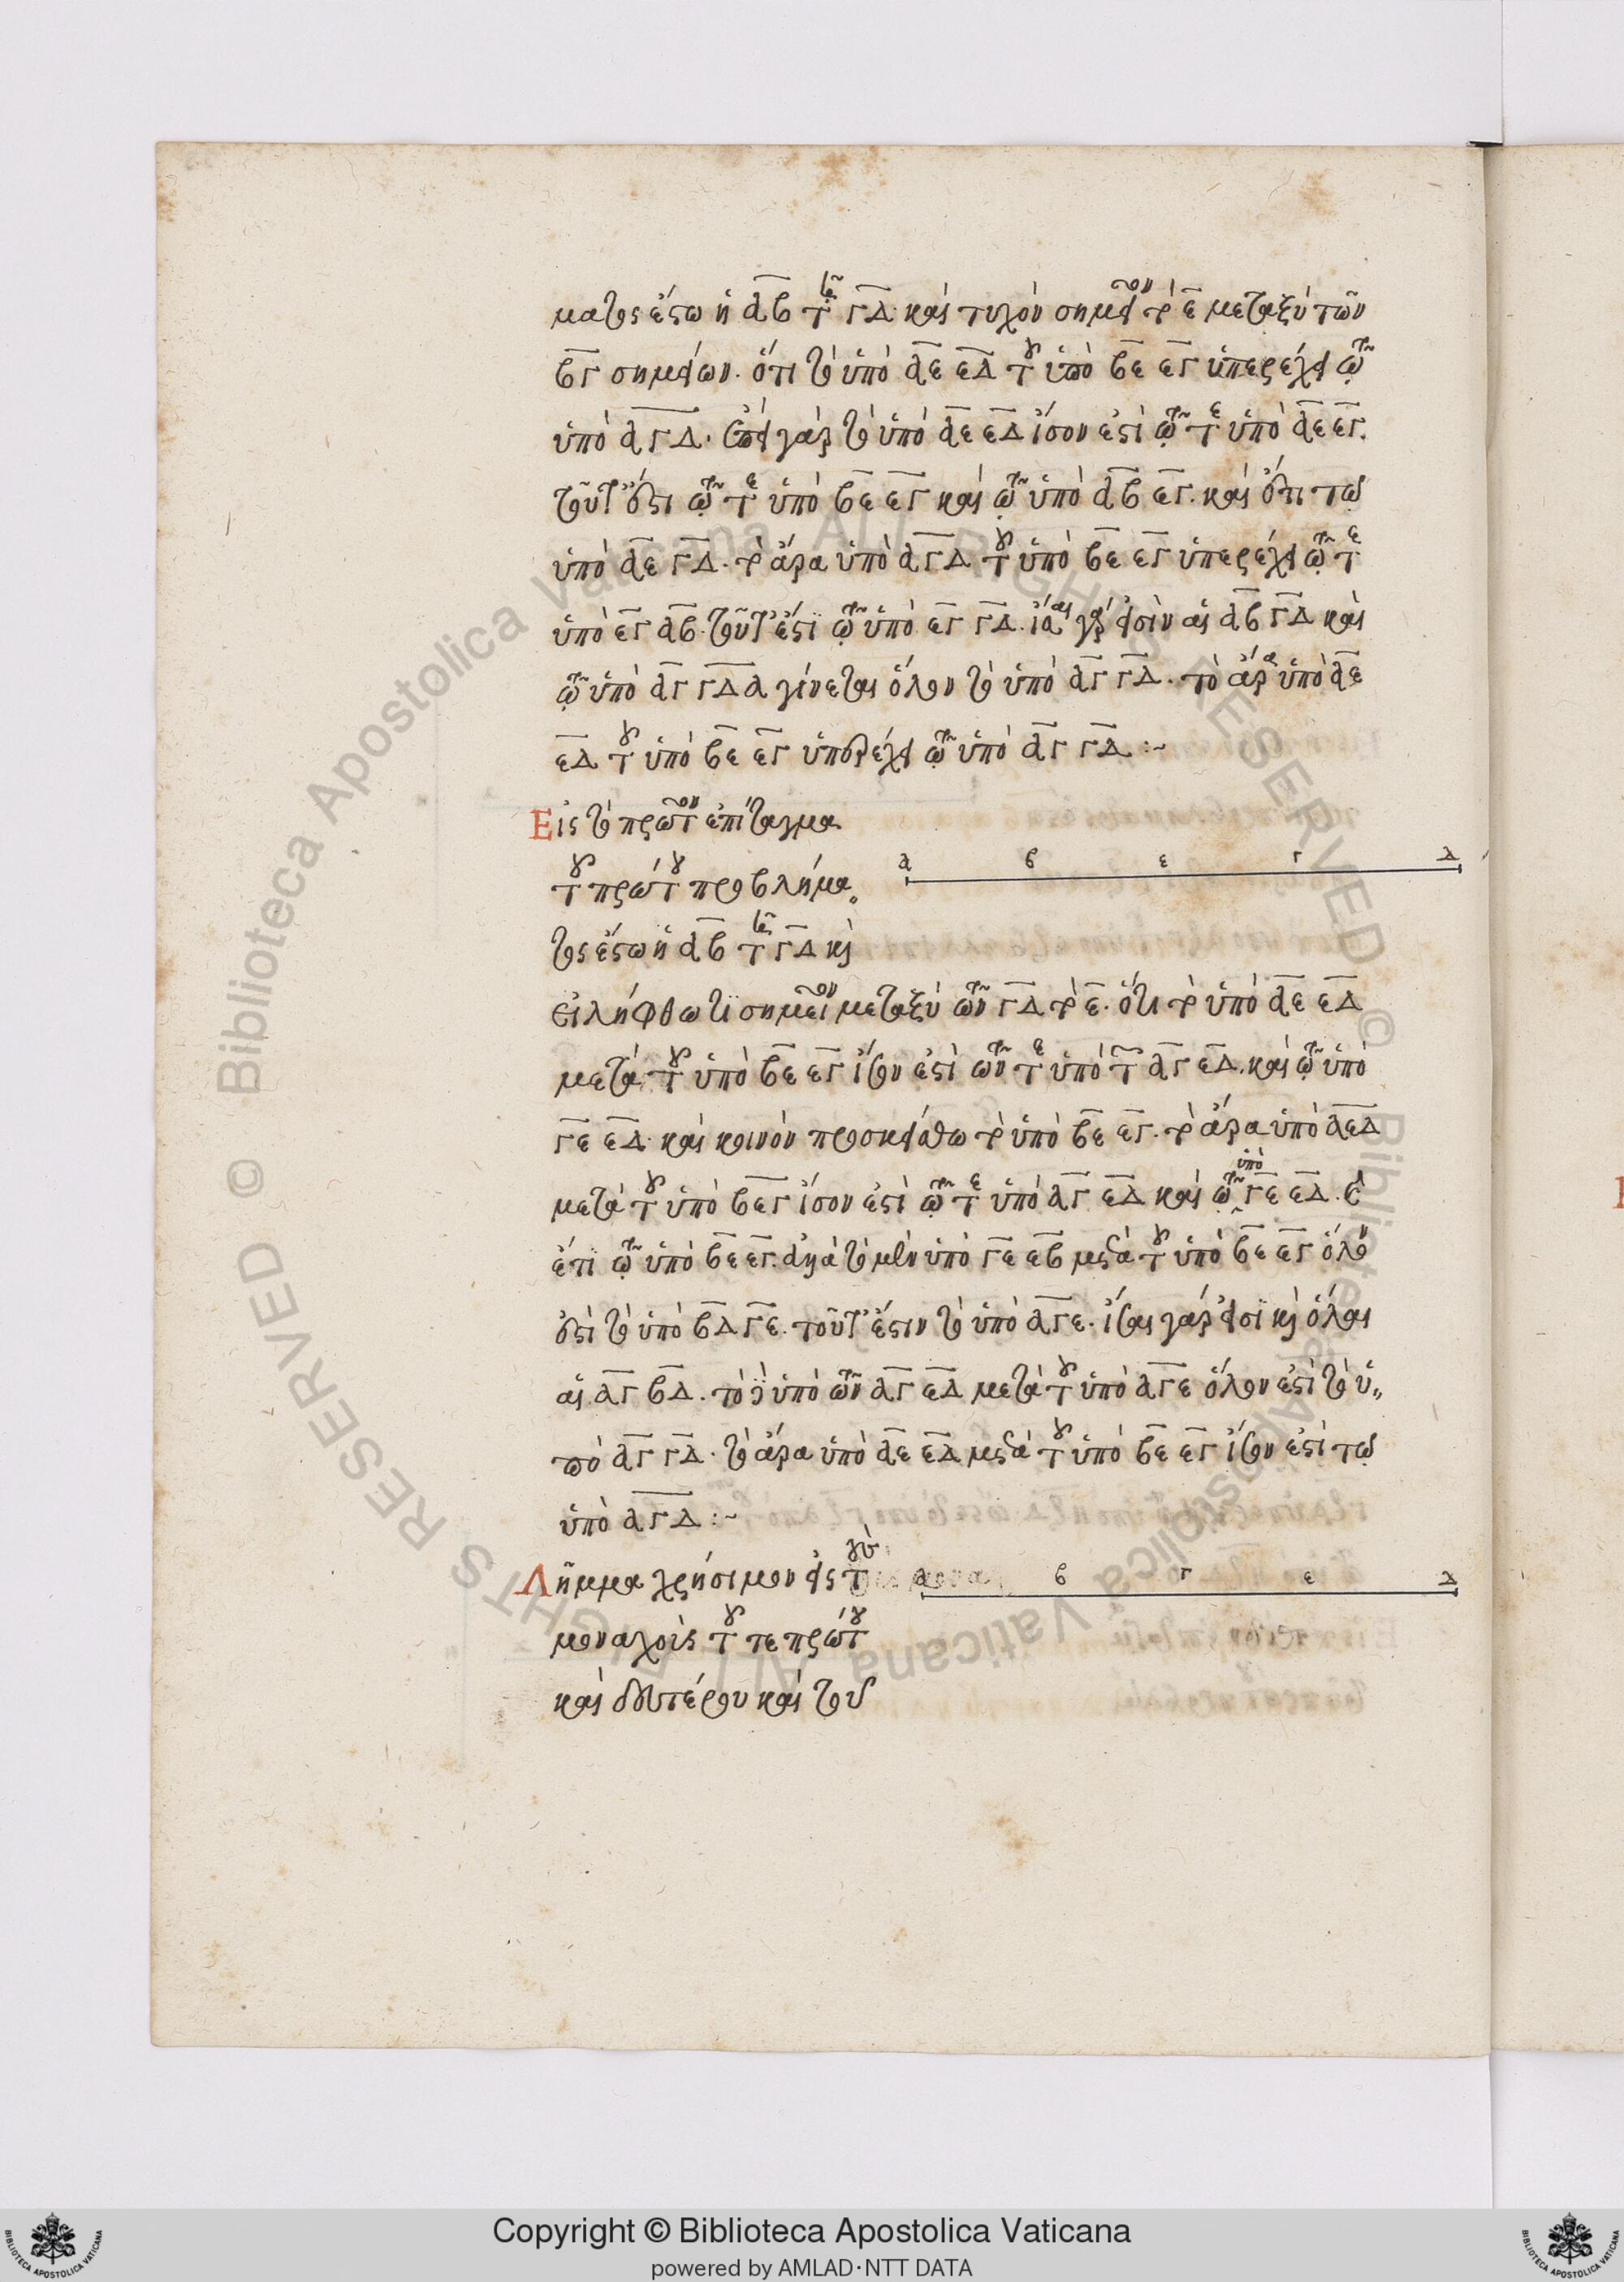 ματος ἔστω ἡ αβ τῆ γδ καὶ τυχὸν σημεῖον τὸ ε μεταξὺ τῶν
βγ σημείων. ὅτι τὸ ὑπὸ αε εδ τοῦ ὑπὸ βε εγ ὑπερέχει τῷ
ὑπὸ αγδ. ἐπεὶ γὰρ τὸ ὑπὸ αε εδ ἴσον ἐστὶ τῷ τε ὑπὸ αε εγ.
τοῦτ ἔστι τῷ τε ὑπὸ βε εγ καὶ τῷ ὑπὸ αβ εγ. καὶ ἔτι τῷ
ὑπὸ αε γδ. τὸ ἄρα ὑπὸ αγδ τοῦ ὑπὸ βε εγ ὑπερέχει τῷ τε
ὑπὸ εγ αβ. τοῦτ ἔστι τῷ ὑπὸ εγ γδ. ἴσαι γάρ εἰσὶν αἱ αβ γδ καὶ
τῷ ὑπὸ αγ γδ α γίνεται ὅλον τὸ ὑπὸ αγ γδ. τὸ ἄρα ὑπὸ αε
εδ τοῦ ὑπὸ βε εγ ὑπερέχει τῷ ὑπὸ αγ γδ :~
Εἰς τὸ πρῶτον ἐπίταγμα
τοῦ πρώτου προβλήμα
α β ε γ δ
τος ἔστω ἡ αβ τῆ γδ καὶ
εἰλήφθω τι σημεῖον μεταξὺ τῶν γδ τὸ ε. ὅτι τὸ ὑπὸ αε εδ
μετὰ τοῦ ὑπὸ βε εγ ἴσον ἐστὶ τῶν τε ὑπὸ τῶν αγ εδ. καὶ τῷ ὑπὸ
γε εδ. καὶ κοινὸν προσκείσθω τὸ ὑπὸ βε εγ. τὸ ἄρα ὑπὸ αεδ
μετὰ τοῦ ὑπὸ βεγ ἴσον ἐστὶ τῷ τε ὑπὸ αγ εδ καὶ τῷ ὑπὸ γε εδ. καὶ
ἔτι τῷ ὑπὸ βε εγ. ἀλλὰ τὸ μὲν ὑπὸ γε εβ μετὰ τοῦ ὑπὸ βε εγ ὅλον
ἐστὶ τὸ ὑπὸ βδ γε. τοῦτ ἔστιν τὸ ὑπὸ αγε. ἴσαι γάρ εἰσι καὶ ὅλαι
αἱ αγ βδ. τὸ δὲ ὑπὸ τῶν αγ εδ μετὰ τοῦ ὑπὸ αγε ὅλον ἐστὶ τὸ ὑ
πὸ αγ γδ. τὸ ἄρα ὑπὸ αε εδ μετὰ τοῦ ὑπὸ βε εγ ἴσον ἐστὶ τῷ
ὑπὸ αγδ :~
Λῆμμα χρήσιμον εἰς τοὺς
α β γ ε δ
μοναχοὺς τοῦ τε πρώτου
καὶ δευτέρου καὶ τοῦ
© Biblioteca Apostolica Vaticana ALL RIGHTS RESERVED
Copyright © Biblioteca Apostolica Vaticana
powered by AMLAD·NTT DATA